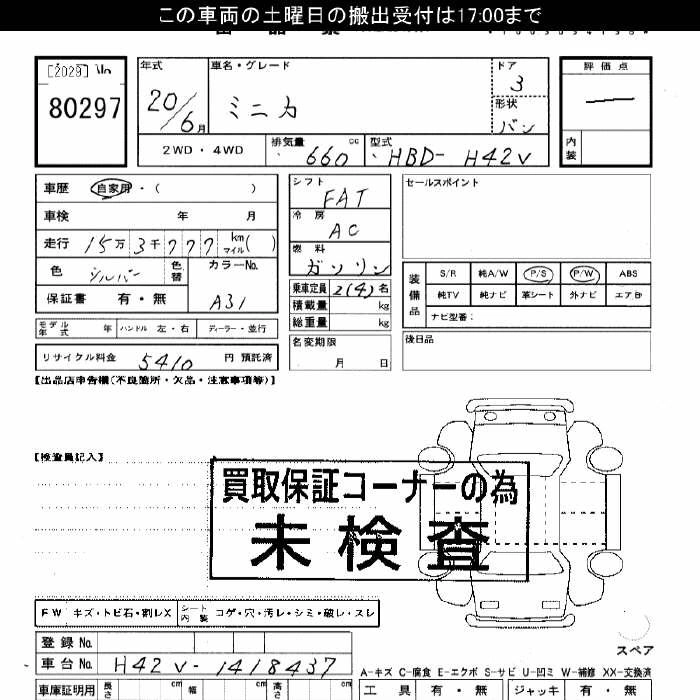 この車両の土曜日の搬出受付は17:00まで
[2029] No
80297
年式
20/6月
車名・グレード
ミニカ
ドア
3
形状
バン
評価点
内装
2WD・4WD
排気量
660
cc
型式
HBD-H42V
車歴
自家用・( )
車検 年 月
走行 15万3千777 km マイル( )
色 シルバー 色替
カラーNo.
A31
保証書 有・無
モデル年式 年 ハンドル 左・右 ディーラー・並行
リサイクル料金 5410 円 預託済
シフト
FAT
冷房
AC
燃料
ガソリン
乗車定員 2(4) 名
積載量 kg
総重量 kg
名変期限
月 日
セールスポイント
装備品
S/R 純A/W P/S P/W ABS
純TV 純ナビ 革シート 外ナビ エアB
ナビ型番:
後日品
【出品店申告欄(不良箇所・欠品・注意事項等)】
【検査員記入】
買取保証コーナーの為
未検査
FW キズ・トビ石・割レX シート内装 コゲ・穴・汚レ・シミ・破レ・スレ
スペア
登録No.
車台No. H42V-1418437
A-キズ C-腐食 E-エクボ S-サビ U-凹ミ W-補修 XX-交換済
車庫証明用 長さ cm 幅 cm 高さ cm
工具 有・無 ジャッキ 有・無